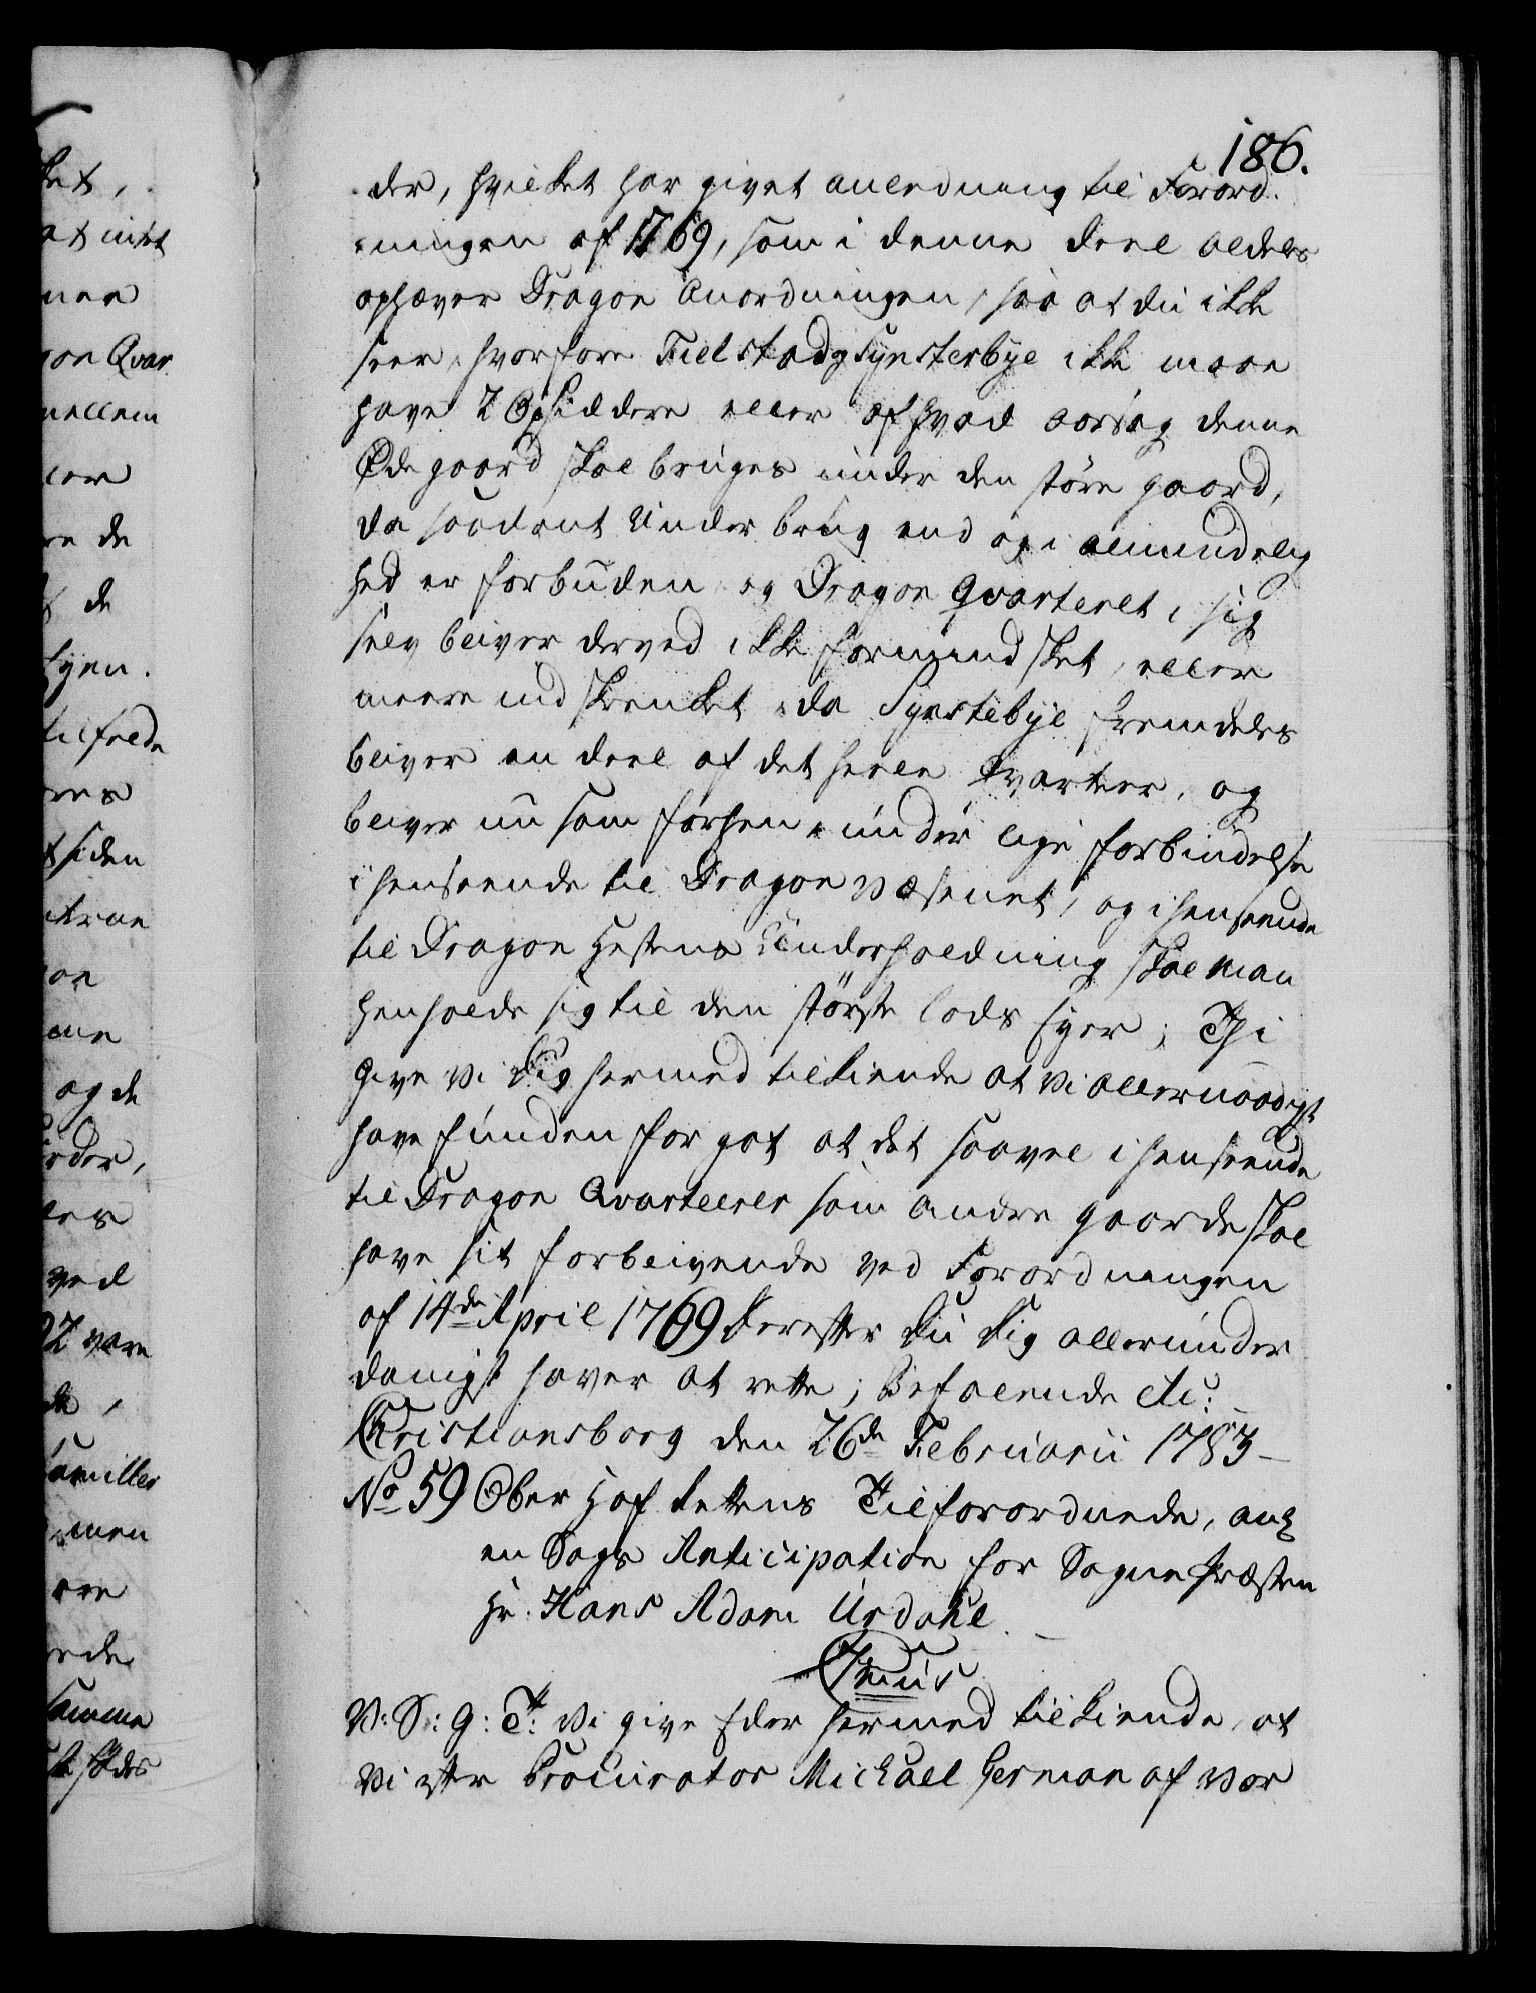 186.
der, hvilket har givet anledning til Forord-
ningen af 1769, som i denne deel aldeles
ophæver Dragon Anordningen, saa at du ikke
seer, hvorfore Fielstad Synsterbye ikke maae
have 2 Opsiddere eller af hvad aarsag denne
Ødegaard skal bruges under den störe gaard,
da saadant Under brug end og i almindelig
hed er forbuden og Dragon Qvarteret i sig
selv bliver derved ikke formindsket, eller
meere indskrenket, da Synstebye fremdeles
bliver en deel af det heele Qvarteer, og
bliver nu som forhen under lige forbindelse
i henseende til Dragon Væsenet, og i henseende
til Dragon Hestens Underholdning skal man
henholde sig til den störste Lods Eyer; Thi
Give Vi dig hermed tilkiende at Vi allernaadigst
have funden for got at det saavel i henseende
til Dragon Qvarteerer som andre gaarde skal
have sit forblivende ved Forordningen
af 14de April 1769 derefter du dig allerunder
danigst haver at rette; Befalende etc:
Christiansborg den 26de Februarii 1783
No 59 Ober Hof Rettens Tilforordnede, ang
en Sags Anticipation for Sogne Præsten
Hr. Hans Adam Urdahl
V: S: G: T: Vi give Eder hermed tilkiende, at
Vi efter Procurator Michael German af Vor